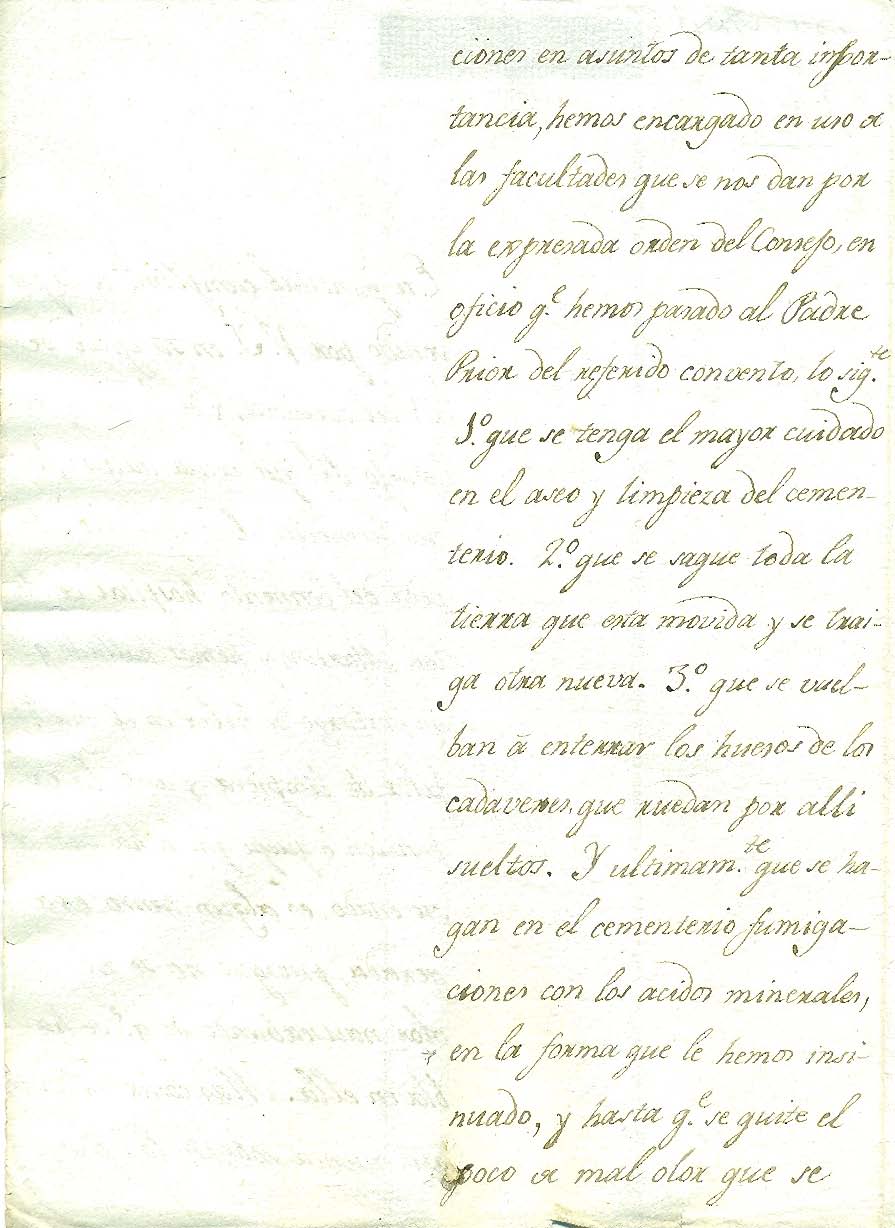 ciones en asuntos de tanta impor-
tancia, hemos encargado en uso de
las facultades que se nos dan por
la expresada orden del Consejo, en
oficio q.e hemos pasado al Padre
Prior del referido convento, lo sig.te
1.o que se tenga el mayor cuidado
en el aseo y limpieza del cemen-
terio. 2.o que se saque toda la
tierra que esta movida y se trai-
ga otra nueva. 3.o que se vuel-
ban à enterrar los huesos de los
cadaveres, que ruedan por alli
sueltos. Y ultimam.te que se ha-
gan en el cementerio fumiga-
ciones con los acidos minerales,
en la forma que le hemos insi-
nuado, y hasta q.e se quite el
poco de mal olor que se